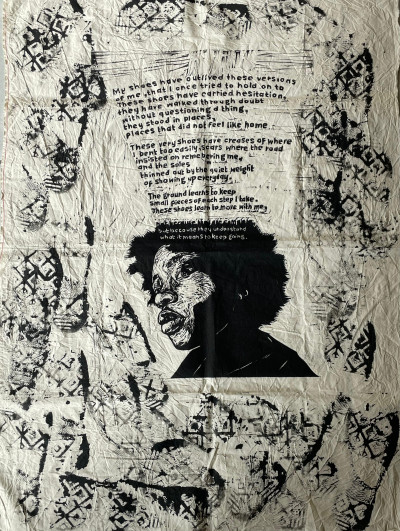 My shoes have outlived these versions
of me, that I once tried to hold on to
These shoes have carried hesitation,
they have walked through doubt
without questioning a thing,
they stood in places,
places that did not feel like home
These very shoes have creases of where
I bent too easily, scars where the road
insisted on remembering me,
and the soles
thinned out by the quiet weight
of showing up everyday.
The ground learns to keep
small pieces of each step I take.
These shoes learn to move with me,
but because they understand
what it means to keep going.